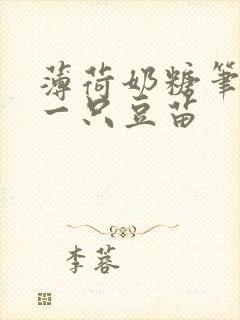 薄荷奶糖笔
一只豆苗
李蓉